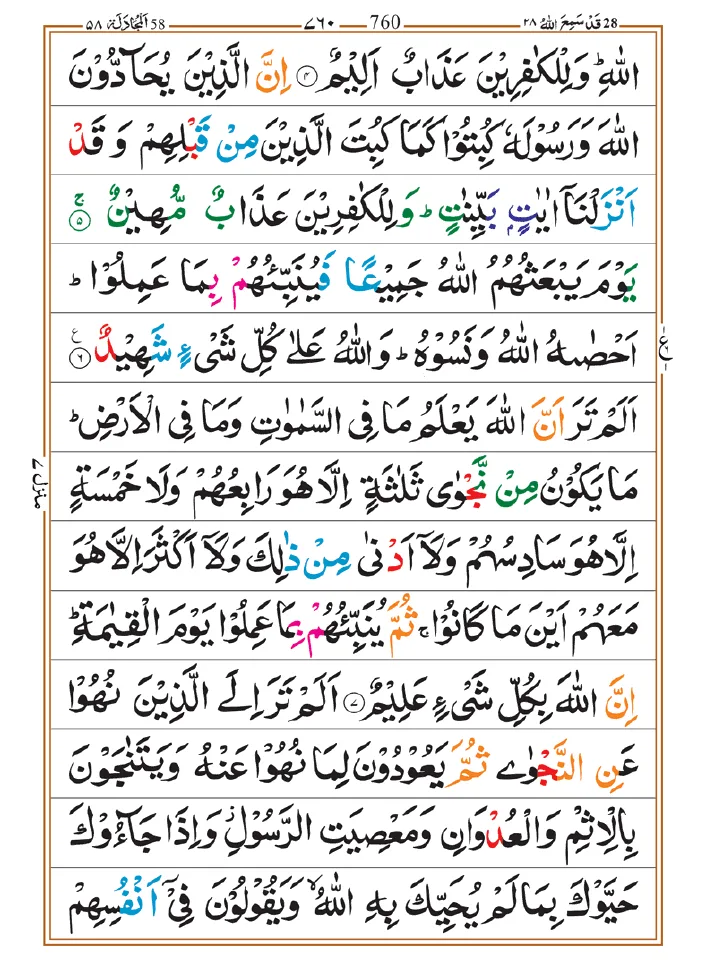 28 قَدْ سَمِعَ اللهُ ٢٨ 760 ٧٦٠ 58 اَلْمُجَادَلَة ٥٨
اللّٰهِ ؕ وَلِلْكٰفِرِيْنَ عَذَابٌ اَلِيْمٌ ۝٤ اِنَّ الَّذِيْنَ يُحَآدُّوْنَ
اللّٰهَ وَرَسُوْلَهٗ كُبِتُوْا كَمَا كُبِتَ الَّذِيْنَ مِنْ قَبْلِهِمْ وَ قَدْ
اَنْزَلْنَاۤ اٰيٰتٍۭ بَيِّنٰتٍ ؕ وَلِلْكٰفِرِيْنَ عَذَابٌ مُّهِيْنٌ ۝٥ۚ
يَوْمَ يَبْعَثُهُمُ اللّٰهُ جَمِيْعًا فَيُنَبِّئُهُمْ بِمَا عَمِلُوْا ؕ
اَحْصٰىهُ اللّٰهُ وَنَسُوْهُ ؕ وَاللّٰهُ عَلٰى كُلِّ شَیْءٍ شَهِيْدٌ ۝٦ ع
اَلَمْ تَرَ اَنَّ اللّٰهَ يَعْلَمُ مَا فِى السَّمٰوٰتِ وَمَا فِى الْاَرْضِ ؕ
مَا يَكُوْنُ مِنْ نَّجْوٰى ثَلٰثَةٍ اِلَّا هُوَ رَابِعُهُمْ وَلَا خَمْسَةٍ
اِلَّا هُوَ سَادِسُهُمْ وَلَاۤ اَدْنٰى مِنْ ذٰلِكَ وَلَاۤ اَكْثَرَ اِلَّا هُوَ
مَعَهُمْ اَيْنَ مَا كَانُوْا ۚ ثُمَّ يُنَبِّئُهُمْ بِمَا عَمِلُوْا يَوْمَ الْقِيٰمَةِ ؕ
اِنَّ اللّٰهَ بِكُلِّ شَیْءٍ عَلِيْمٌ ۝٧ اَلَمْ تَرَ اِلَى الَّذِيْنَ نُهُوْا
عَنِ النَّجْوٰى ثُمَّ يَعُوْدُوْنَ لِمَا نُهُوْا عَنْهُ وَيَتَنٰجَوْنَ
بِالْاِثْمِ وَالْعُدْوَانِ وَمَعْصِيَتِ الرَّسُوْلِ ؗ وَاِذَا جَآءُوْكَ
حَيَّوْكَ بِمَا لَمْ يُحَيِّكَ بِهِ اللّٰهُ ۙ وَيَقُوْلُوْنَ فِيْۤ اَنْفُسِهِمْ
منزل ٧